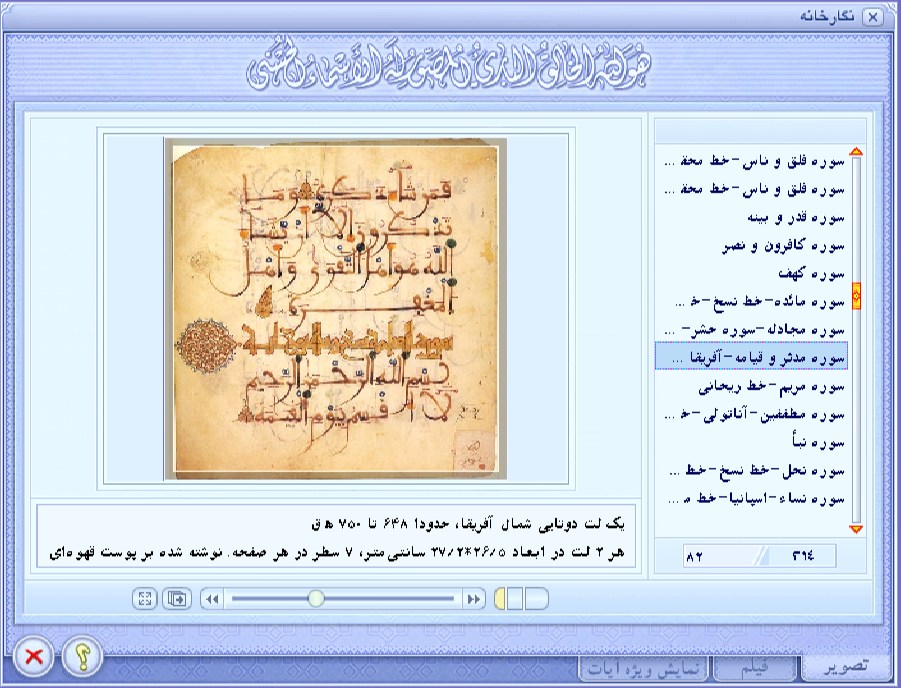 نگارخانه
هو الله الخالق البارئ المصور له الأسماء الحسنى
سوره فلق و ناس-خط محقـ ...
سوره فلق و ناس-خط محقـ ...
سوره قدر و بینه
سوره کافرون و نصر
سوره کهف
سوره مائده-خط نسخ-خـ ...
سوره مجادله-سوره حشر- ...
سوره مدثر و قیامه-آفریقا ...
سوره مریم-خط ریحانی
سوره مطففین-آناتولی-خـ ...
سوره نبأ
سوره نحل-خط نسخ-خط ...
سوره نساء-اسپانیا-خط مـ ...
۳۹۴
۸۲
فمن شاء ذكره وما
يذكرون إلا أن يشاء
الله هو أهل التقوى وأهل
المغفرة
بسم الله الرحمن الرحيم
لا أقسم بيوم القيمة
یک لت دوتایی شمال آفریقا، حدودا ۶۴۸ تا ۷۵۰ ه ق
هر ۲ لت در ابعاد ۲۶/۵*۲۷/۲ سانتی متر، ۷ سطر در هر صفحه. نوشته شده بر پوست قهوه‌ای
تصویر
فیلم
نمایش ویژه آیات